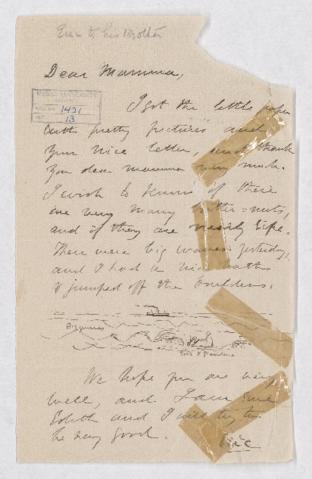 Eric to his Brother
1491
13
Dear Mamma,
I got the little paper
with pretty pictures and
your nice letter, and thank
you dear mamma very much.
I wish to know if there
are very many nuts,
and if they are nearly ripe.
There were big waves yesterday,
and I had a nice bath
& jumped off the boulders.
We hope you are very
well, and I am
and I will try to
be very good. Eric